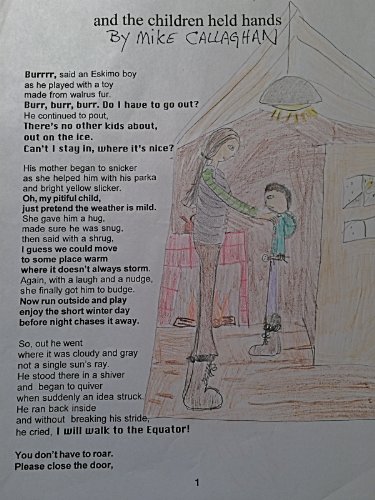 and the children held hands
By MIKE CALLAGHAN
Burrrr, said an Eskimo boy
as he played with a toy
made from walrus fur.
Burr, burr, burr. Do I have to go out?
He continued to pout,
There's no other kids about,
out on the ice.
Can't I stay in, where it's nice?
His mother began to snicker
as she helped him with his parka
and bright yellow slicker.
Oh, my pitiful child,
just pretend the weather is mild.
She gave him a hug,
made sure he was snug,
then said with a shrug,
I guess we could move
to some place warm
where it doesn't always storm.
Again, with a laugh and a nudge,
she finally got him to budge.
Now run outside and play
enjoy the short winter day
before night chases it away.
So, out he went
where it was cloudy and gray
not a single sun's ray.
He stood there in a shiver
and began to quiver
when suddenly an idea struck.
He ran back inside
and without breaking his stride,
he cried, I will walk to the Equator!
You don't have to roar.
Please close the door,
1